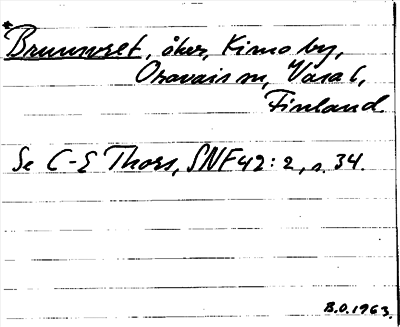 *Brunnsret, åker, Kimo by,
Oravais sn, Vasa l,
Finland
Se C-E Thors, SNF 42:2, s. 34.
B.O. 1963.